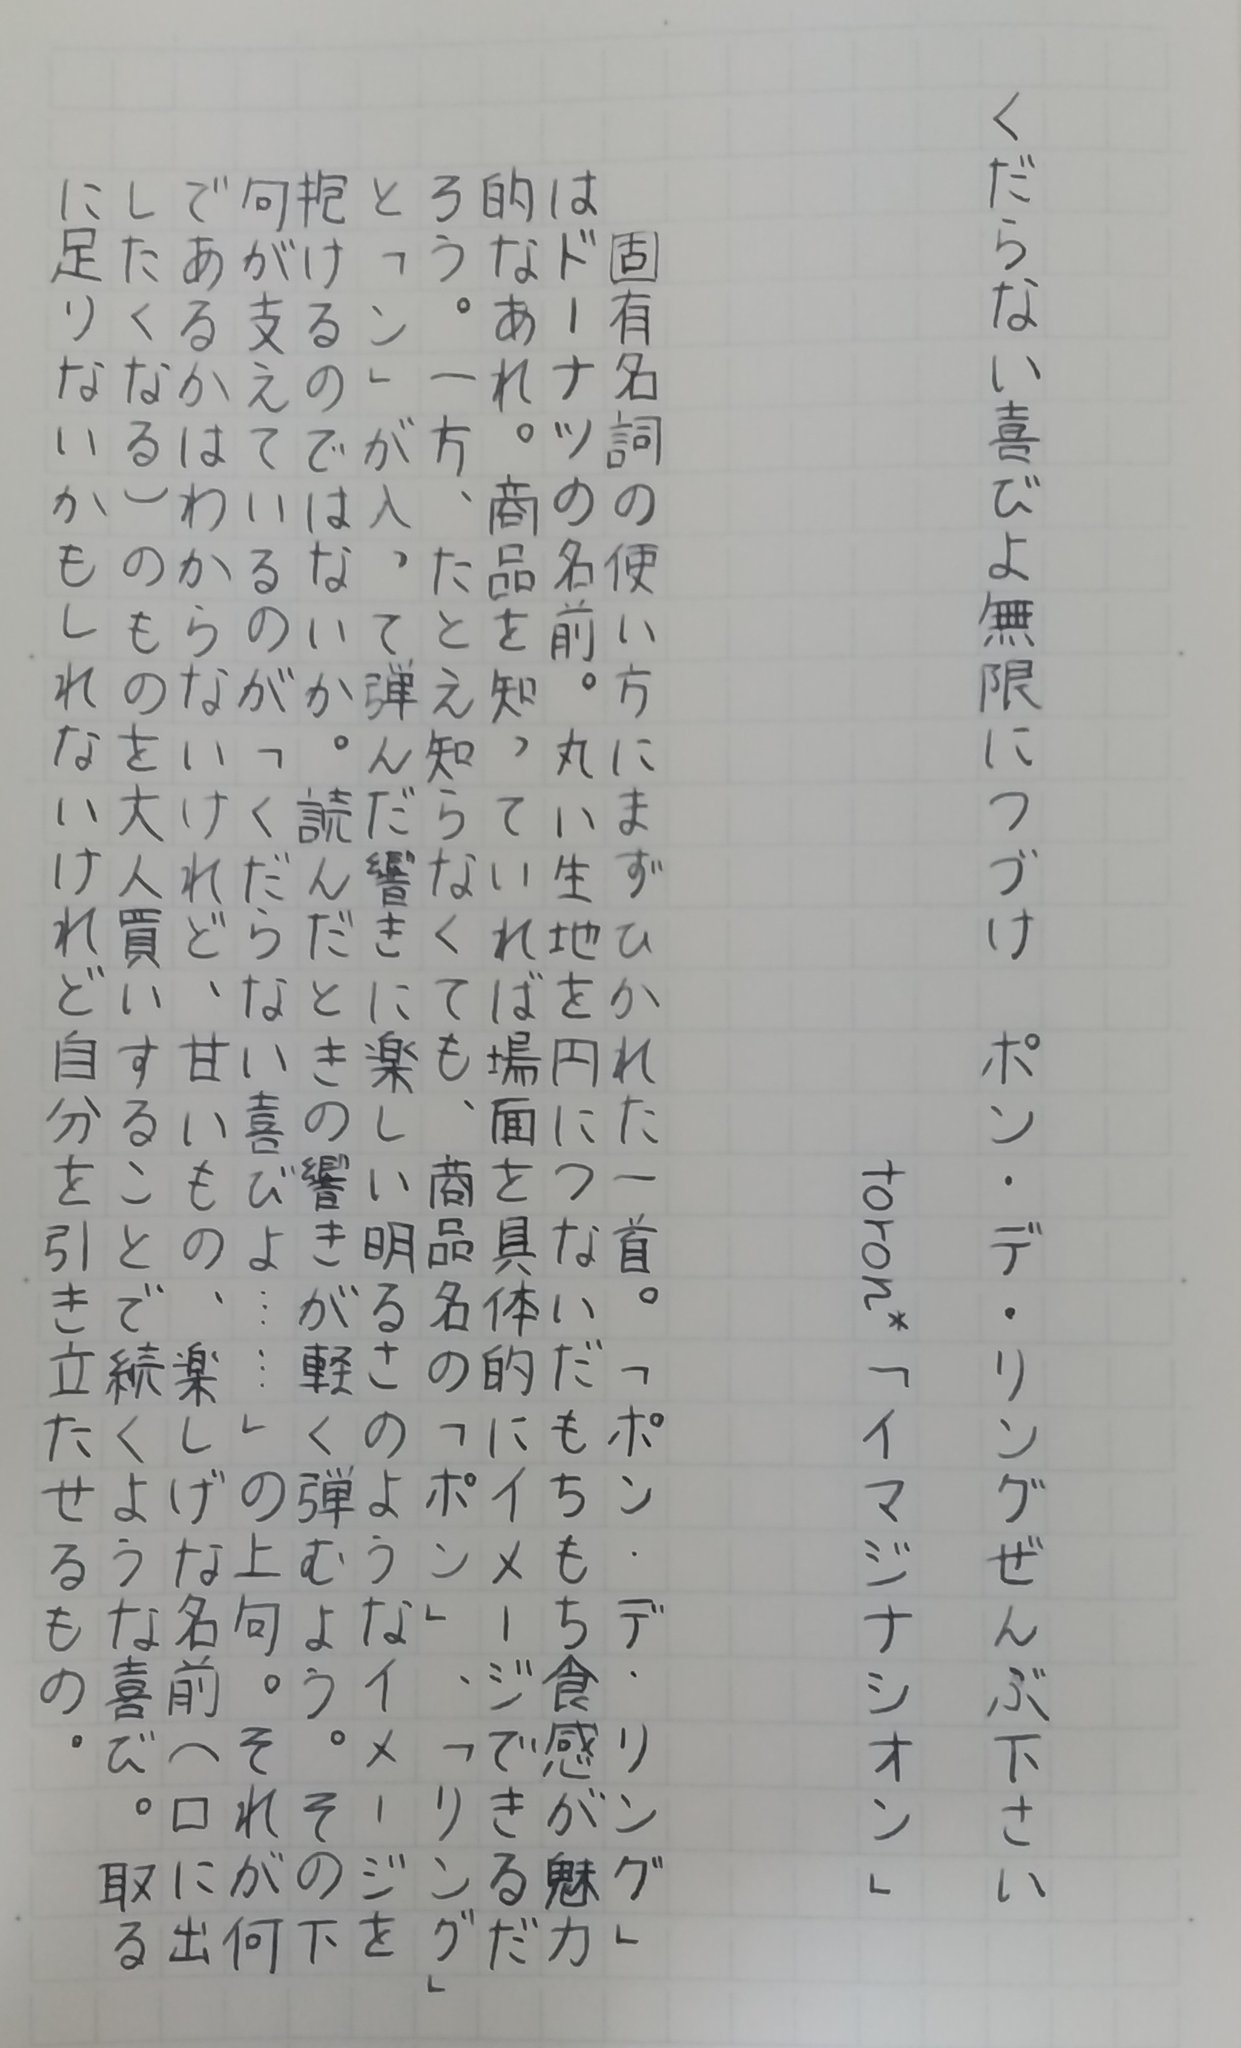 くだらない喜びよ無限につづけ　ポン・デ・リングぜんぶ下さい
toron*「イマジナシオン」
固有名詞の使い方にまずひかれた一首。「ポン・デ・リング」
はドーナツの名前。丸い生地を円につないだもちもち食感が魅力
的なあれ。商品を知っていれば場面を具体的にイメージできるだ
ろう。一方、たとえ知らなくても、商品名の「ポン」、「リング」
と「ン」が入って弾んだ響きに楽しい明るさのようなイメージを
抱けるのではないか。読んだときの響きが軽く弾むよう。その下
句が支えているのが「くだらない喜びよ……」の上句。それが何
であるかはわからないけれど、甘いもの、楽しげな名前（口に出
したくなる）のものを大人買いすることで続くような喜び。取る
に足りないかもしれないけれど自分を引き立たせるもの。